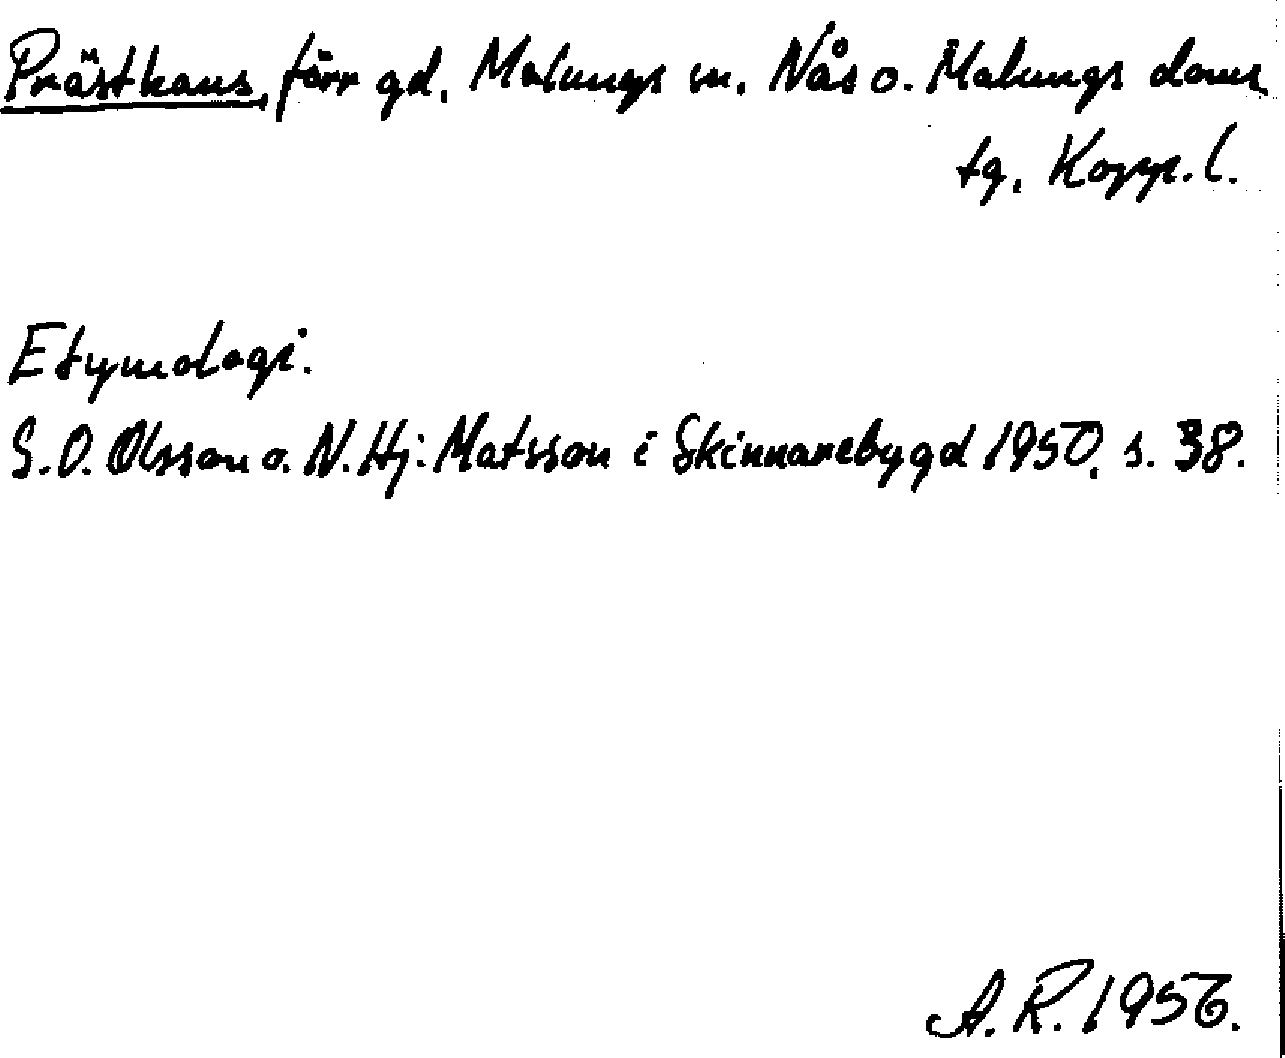 Prästhans, förr gd, Malungs sn, Nås o. Malungs doms
tg, Kopp. l.
Etymologi.
S.O. Olsson o. N. Hj: Matsson i Skinnarebygd 1950, s. 38.
A.R. 1956.